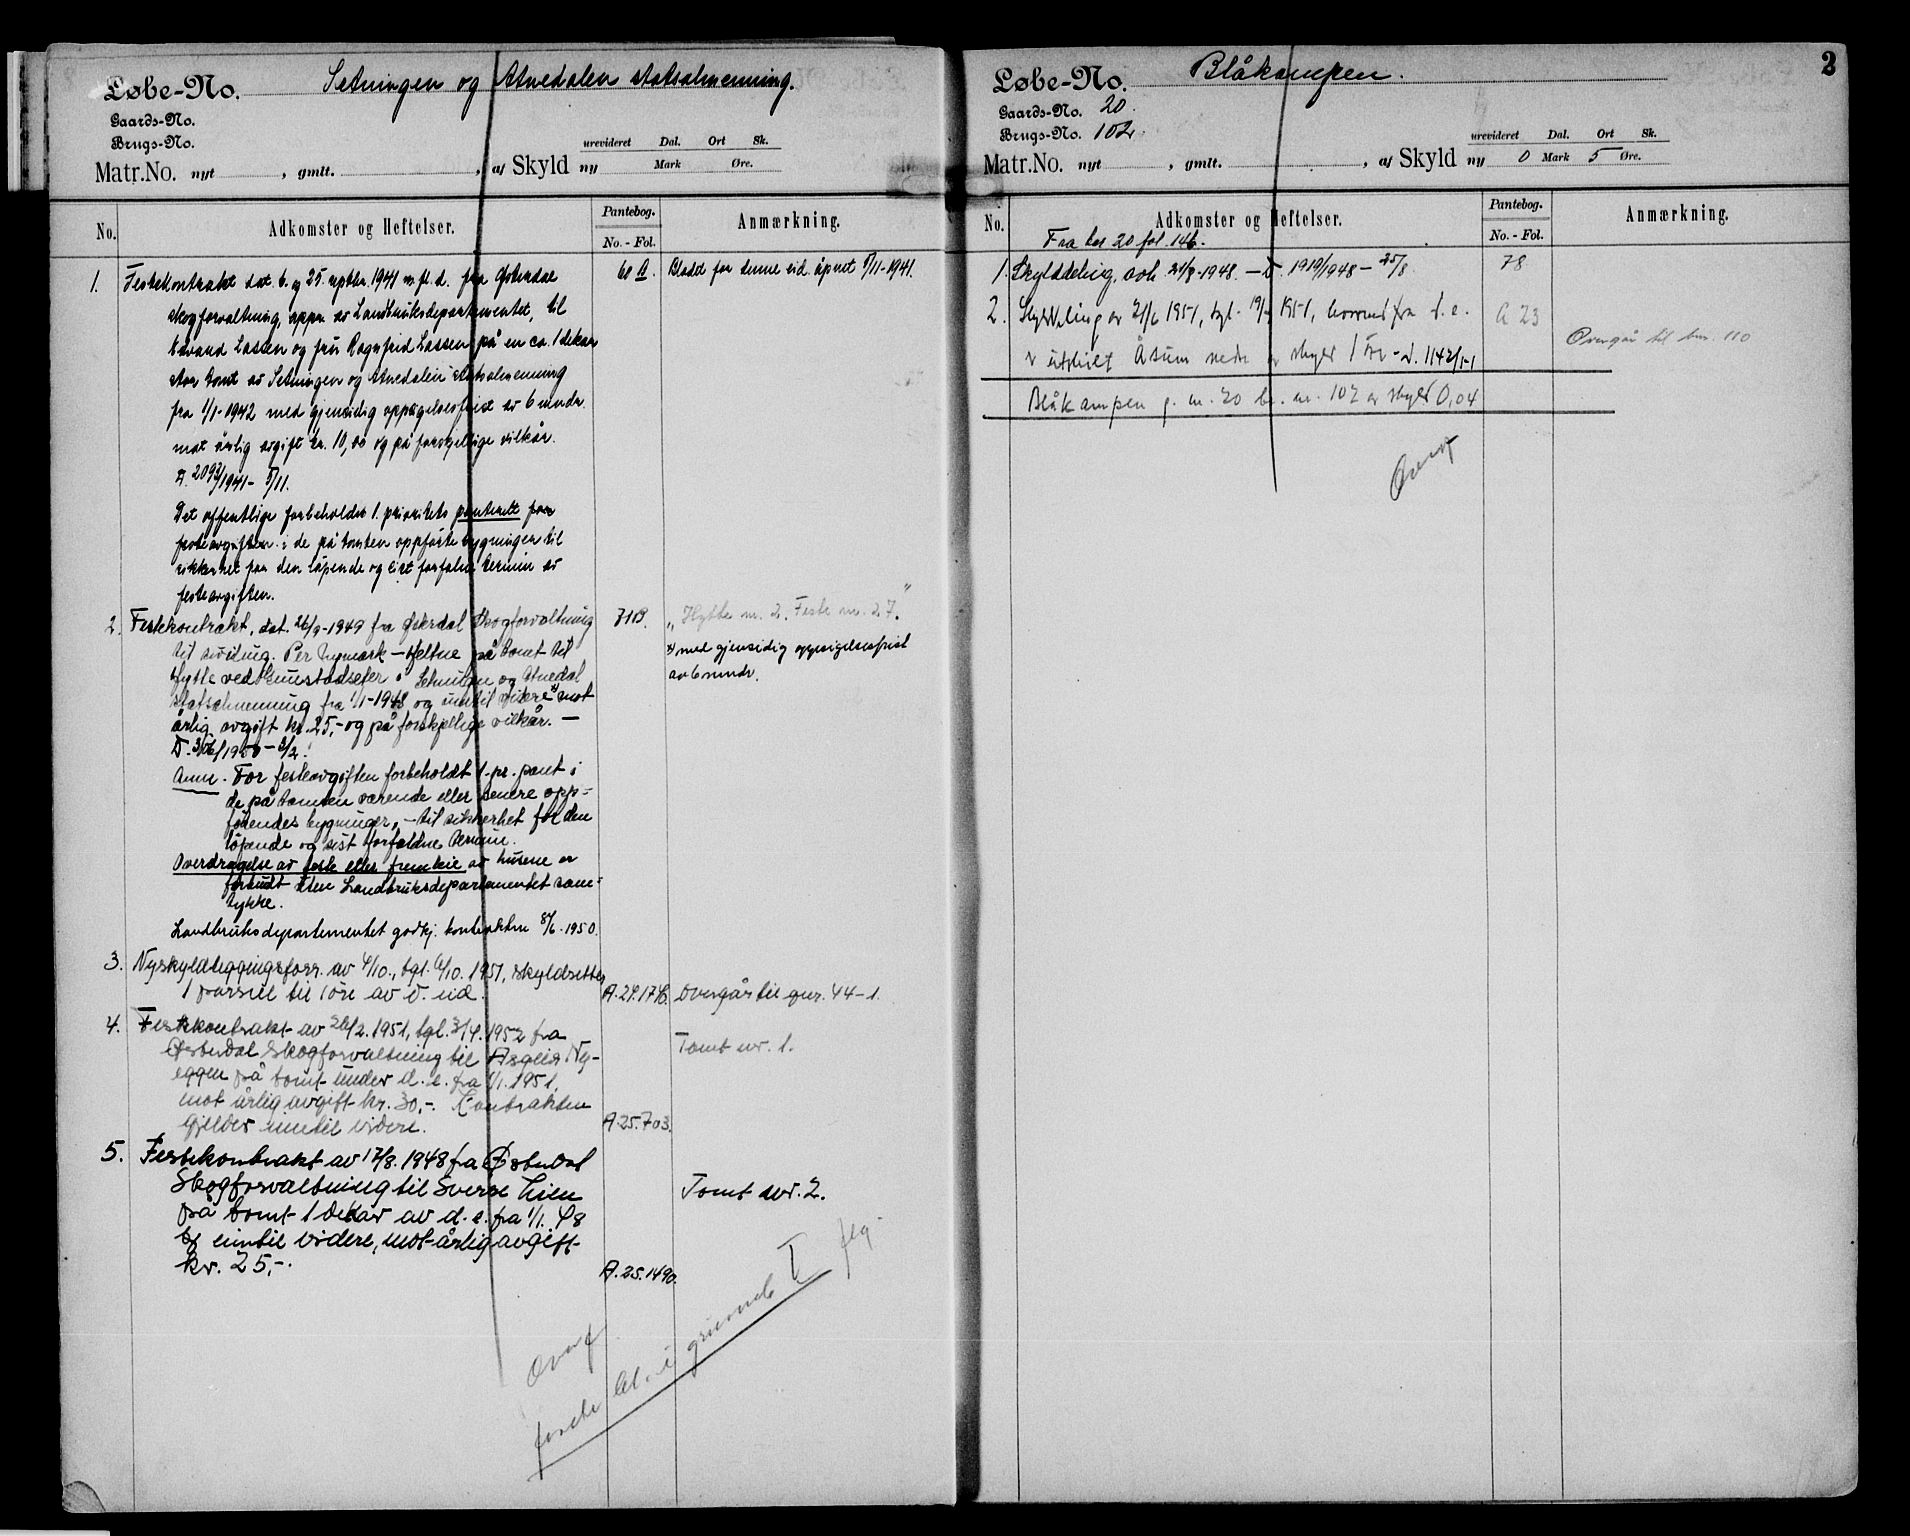 Løbe-No. Setningen og Atnedalen statsalmenning.
Gaards-No.
Brugs-No.
urevideret Dal. Ort Sk.
Matr.No. nyt , gmlt. , af Skyld ny Mark Øre.
No. Adkomster og Heftelser. Pantebog. No. - Fol. Anmærkning.
1. Festekontrakt dat. 6. og 25. septbr. 1941 m. fl. d. fra Østerdal 60 A. Bladet for denne eid. åpnet 5/11-1941.
skogforvaltning, appr. av Landbruksdepartementet, til
Edvand Lassen og frü Ragnfrid Lassen på en ca. 1 dekar
stor tomt av Setningen og Atnedalen statsalmenning
fra 1/1-1942 med gjensidig oppsigelsesfrist av 6 mndr.
mot årlig avgift kr. 10,00 og på forskjellige vilkår.
D. 2093/1941 - 5/11.
Det offentlige forbeholder 1. prioritets panterett for
festeavgiften i de på tomten oppførte bygninger til
sikkerhet for den löpende og sist forfalne termin av
festeavgiften.
2. Festekontrakt, dat. 26/9-1949 fra Østerdal Skogforvaltning 71B. „Hytte nr. 2. Feste nr. 27."
til siviling. Per Nymark - Heltne på tomt til x) med gjensidig oppsigelsesfrist
hytte ved i Setningen og Atnedal av 6 mndr.
statsalmenning fra 1/1-1948 og inntil videre x) mot
årlig avgift kr. 25,- og på forskjellige vilkår. -
D. 306/1950 - 2/2.
Anm. For festeavgiften forbeholdt 1. pr. pant i
de på tomten værende eller senere opp-
förendes bygninger, - til sikkerhet for den
löpende og sist forfaldne termin.
Overdragelse av feste eller fremleie av husene er
forbudt uten Landbruksdepartementet sam-
tykke.
Landbruksdepartementet godkj. kontrakten 8/6-1950.
3. Nyskyldleggingsforr. av 4/10., tgl. 6/10. 1951, skyldsetter
1 parsell til 1 öre av d. eid. A.24.1746. Overgår til gnr. 44-1.
4. Festekontrakt av 26/2. 1951, tgl. 3/4. 1952 fra
Østerdal Skogforvaltning til Asgeir Ny- Tomt nr. 1.
eggen på tomt under d. e. fra 1/1. 1951,
mot årlig avgift kr. 30,-. Kontrakten
gjelder inntil videre. A.25.703.
5. Festekontrakt av 17/8. 1948 fra Østerdal
Skogforvaltning til Sverre Lien Tomt nr. 2.
på tomt 1 dekar av d. e. fra 1/1. 48
og inntil videre, mot årlig avgift
kr. 25,-. A.25.1490.
Overf
bl. i grunnb I flg.
2
Løbe-No. Blåkampen.
Gaards-No. 20.
Brugs-No. 102.
urevideret Dal. Ort Sk.
Matr.No. nyt , gmlt. , af Skyld ny 0 Mark 5 Øre.
No. Adkomster og Heftelser. Pantebog. No. - Fol. Anmærkning.
Fra ber 20 fol. 146.
1. Skylddeling, avh. 21/8-1948. - D. 1919/1948 - 25/8. 78
2. Skylddeling av 21/6 1951, tgl. 1951, hvorved fra d. e. A 23
er utskilt Åsum nedre av skyld 1 öre - d. 1142/51 Overgår til bnr. 110
Blåkampen g. nr. 20 br. nr. 102 av skyld 0,04
Overf